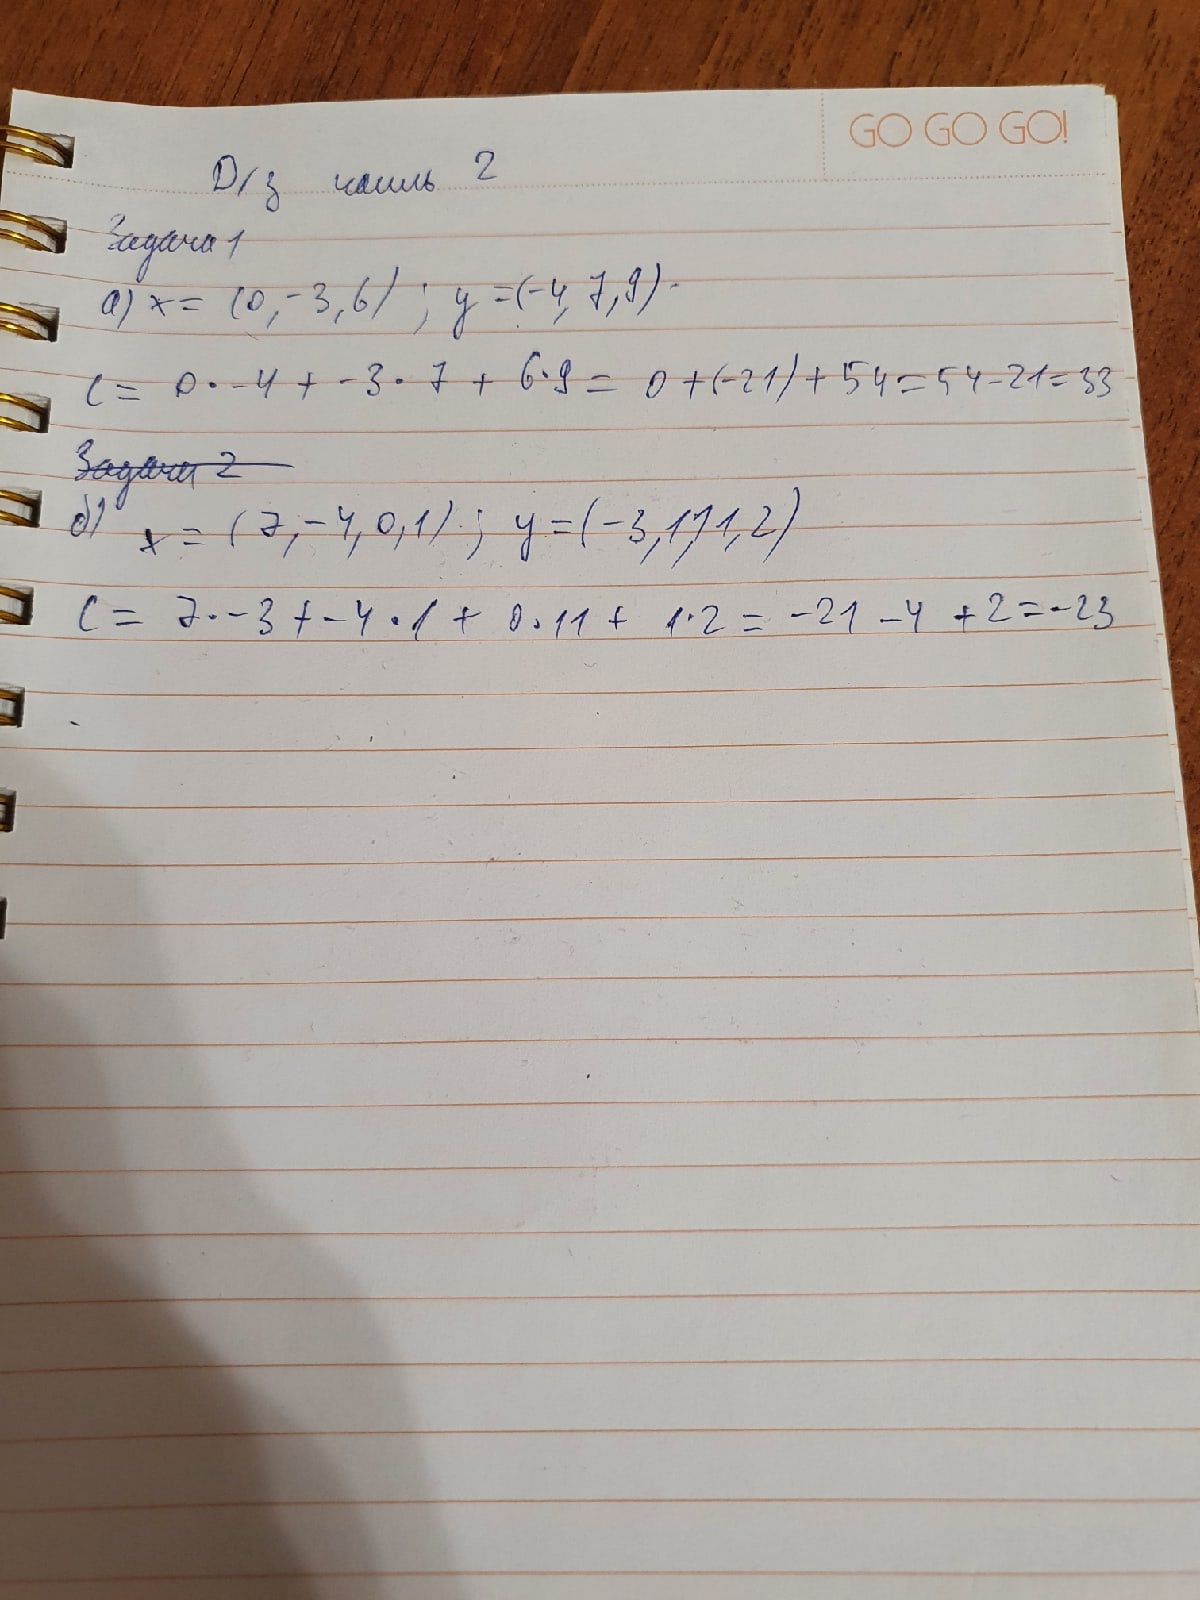 GO GO GO!
Д/з часть 2
Задача 1
а) x = (0, -3, 6) ; y = (-4, 7, 9).
C = 0 · -4 + -3 · 7 + 6·9 = 0 + (-21) + 54 = 54 - 21 = 33
Задача 2
б) x = (7, -4, 0, 1) ; y = (-3, 1, 11, 2)
C = 7 · -3 + -4 · 1 + 0 · 11 + 1·2 = -21 - 4 + 2 = -23